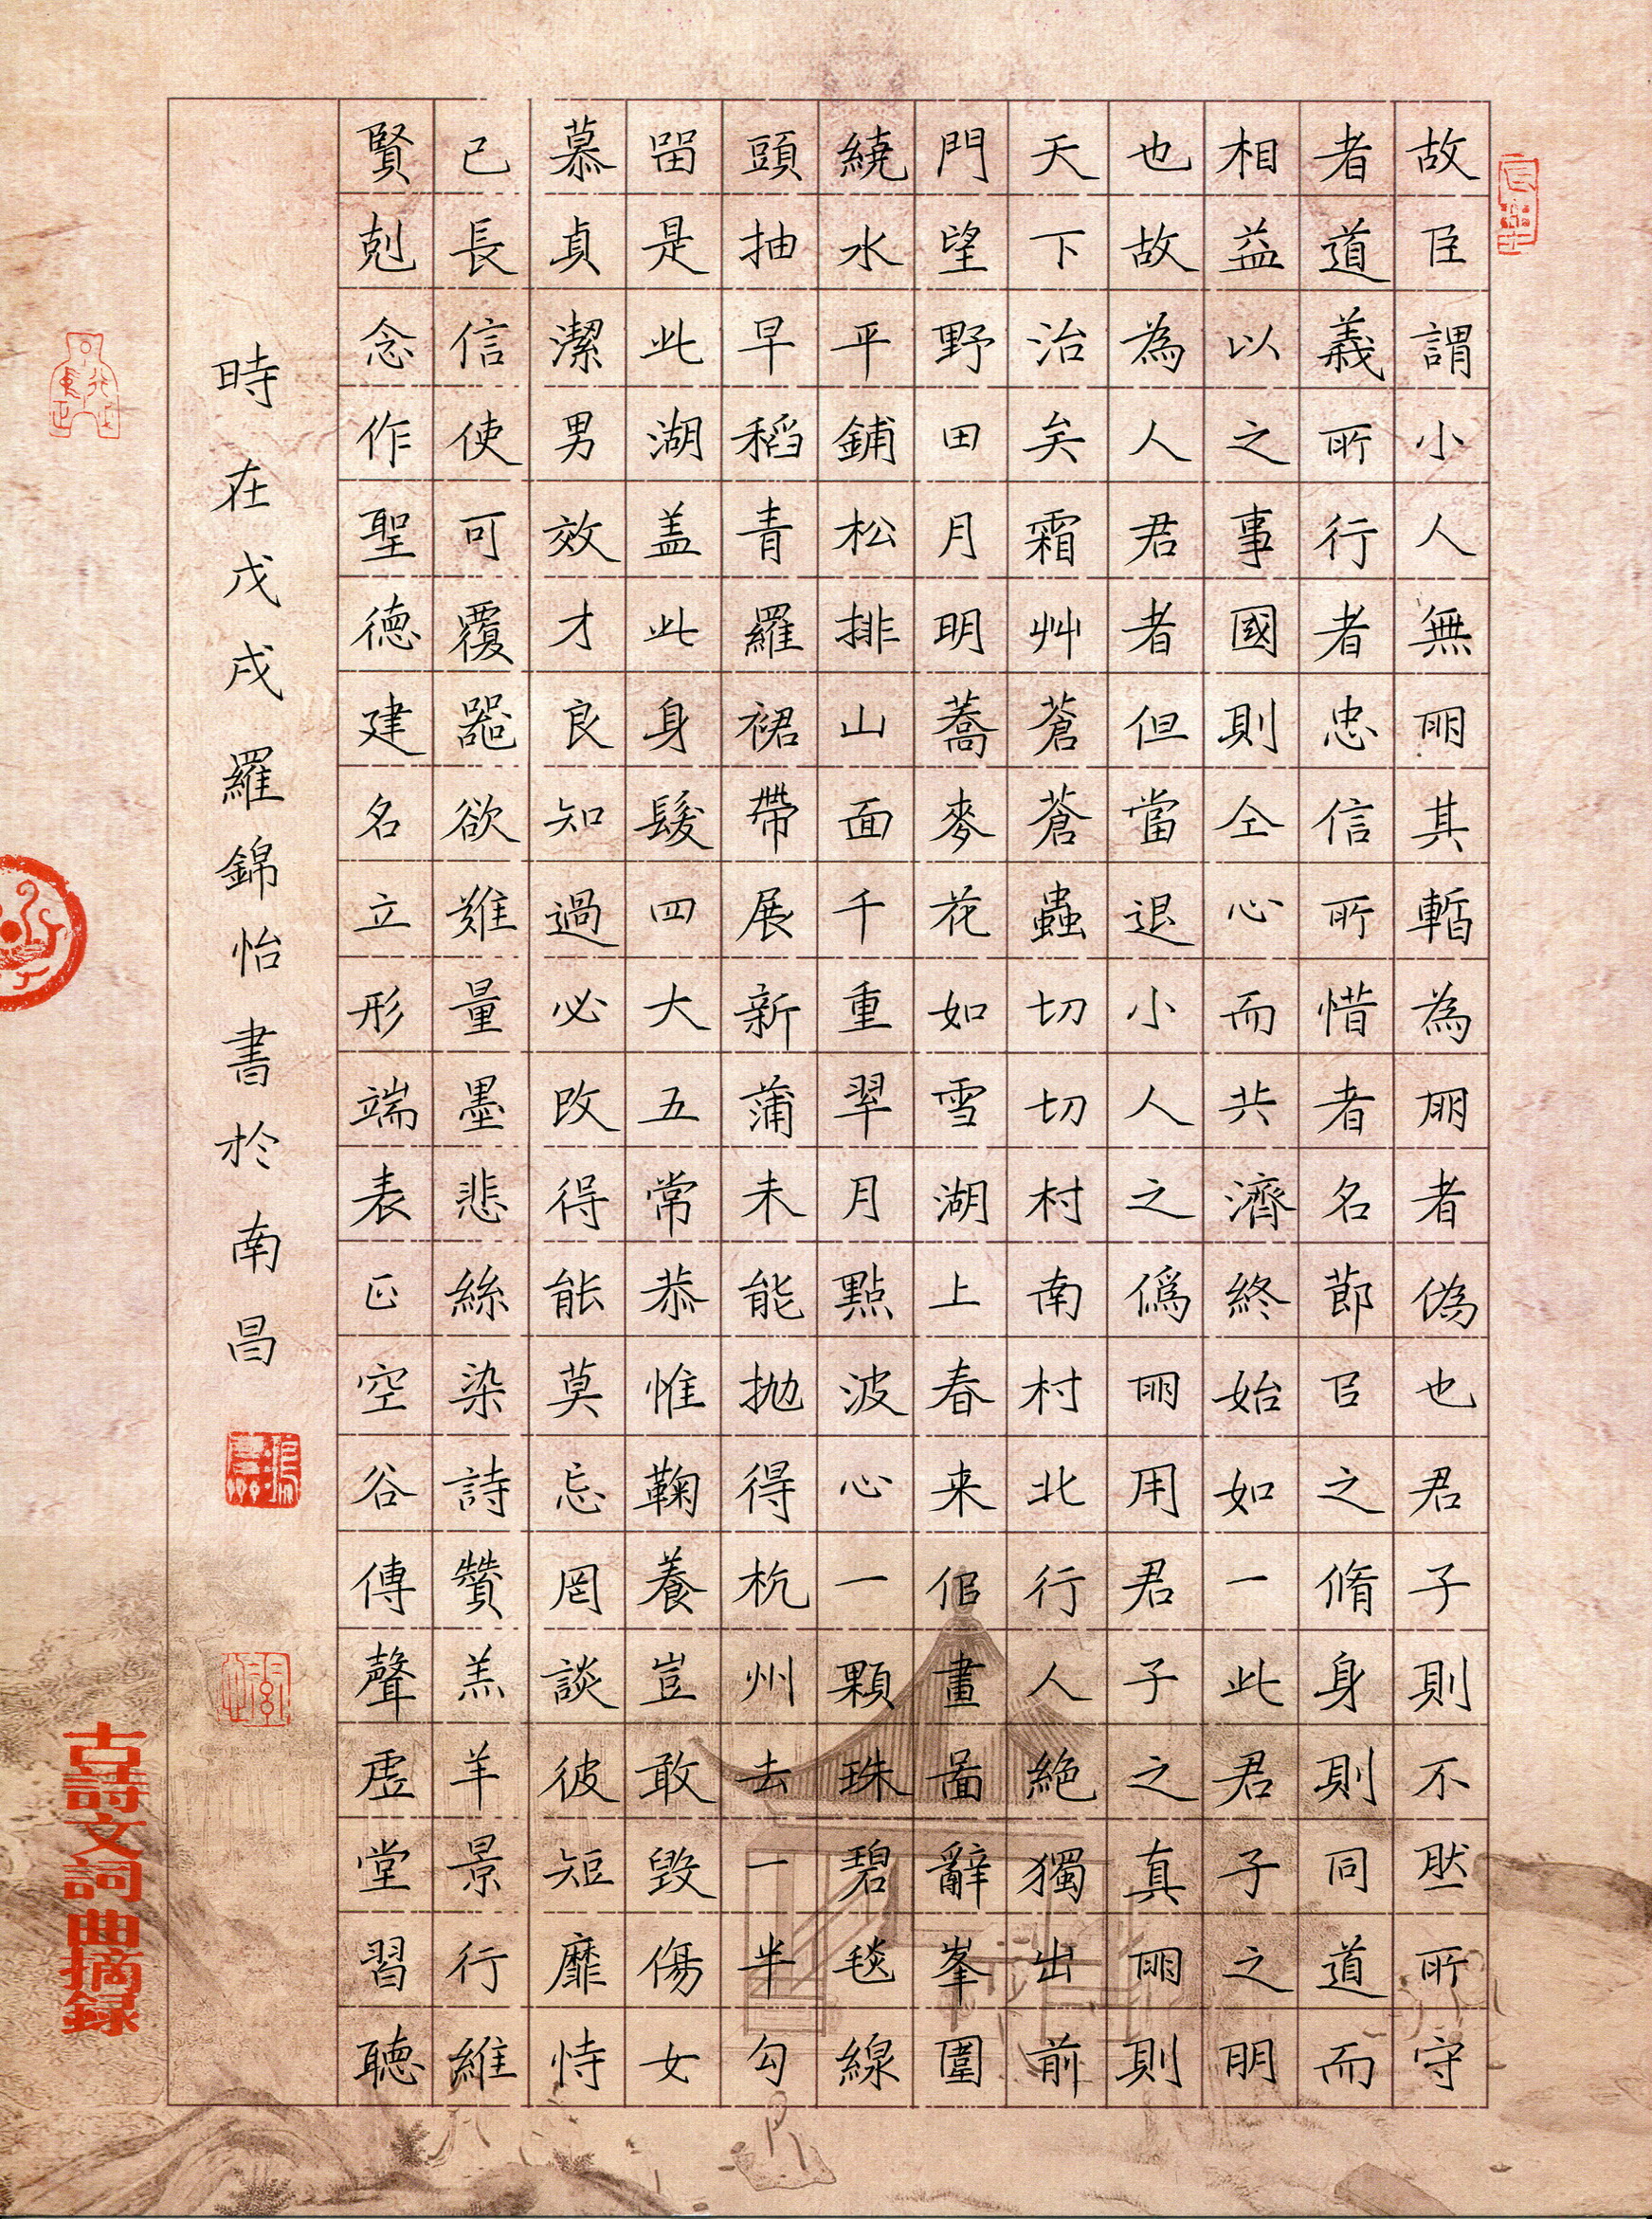 故臣謂小人無朋其暫為朋者偽也君子則不然所守
者道義所行者忠信所惜者名節以之脩身則同道而
相益以之事國則仝心而共濟終始如一此君子之朋
也故為人君者但當退小人之偽朋用君子之真朋則
天下治矣霜艸蒼蒼蟲切切村南村北行人絶獨出前
門望野田月明蕎麥花如雪湖上春来佀畫啚辭峯圍
繞水平鋪松排山面千重翠月點波心一顆珠碧毯線
頭抽早稻青羅裙帶展新蒲未能抛得杭州去一半勾
留是此湖盖此身髮四大五常恭惟鞠養豈敢毀傷女
慕貞潔男效才良知過必改得能莫忘罔談彼短靡恃
己長信使可覆器欲難量墨悲絲染詩贊羔羊景行維
賢剋念作聖德建名立形端表正空谷傳聲虛堂習聽
時在戊戌羅錦怡書於南昌
古詩文詞曲摘録